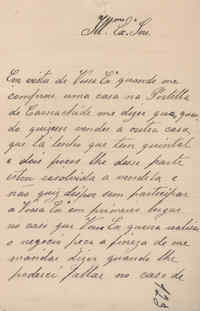 Illmª Exª Snra
Em carta de Vossa Exª quando me
comprou uma casa na Portella
de Carnachide me dizer que, quan-
do quizesse vender a outra casa,
que lá tenho que tem quintal
e dois poços lhe désse parte
estou resolvida a vendela e
não quiz dispor sem participar
a Vossa Exª em primeiro lugar
no caso que Vossa Exª queira realisar
o negocio peço a fineza de me
mandar dizer quando lhe
poderei fallar no caso de